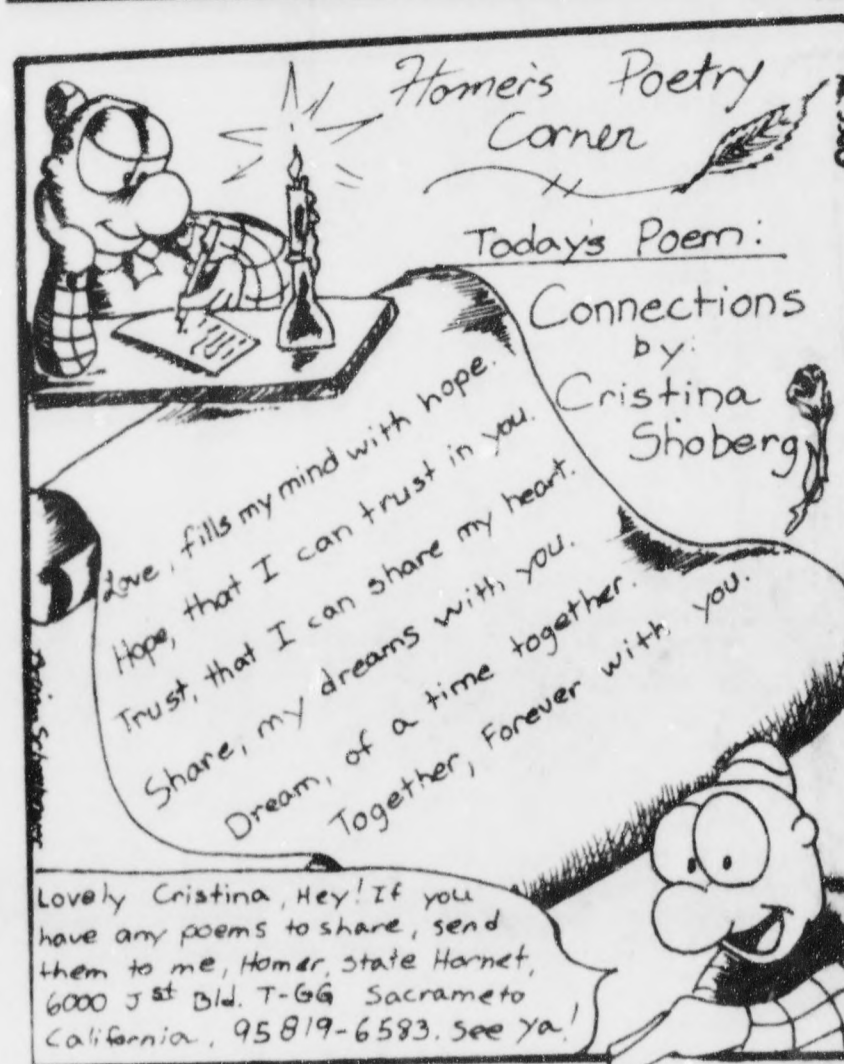 Homer's Poetry
Corner
Today's Poem:
Connections
by:
Cristina
Shoberg
Love, fills my mind with hope.
Hope, that I can trust in you.
Trust, that I can share my heart.
Share, my dreams with you.
Dream, of a time together.
Together, Forever with you.
Lovely Cristina, Hey! If you
have any poems to share, send
them to me, Homer, State Hornet,
6000 J st Bld. T-GG Sacrameto
California, 95819-6583. See Ya!